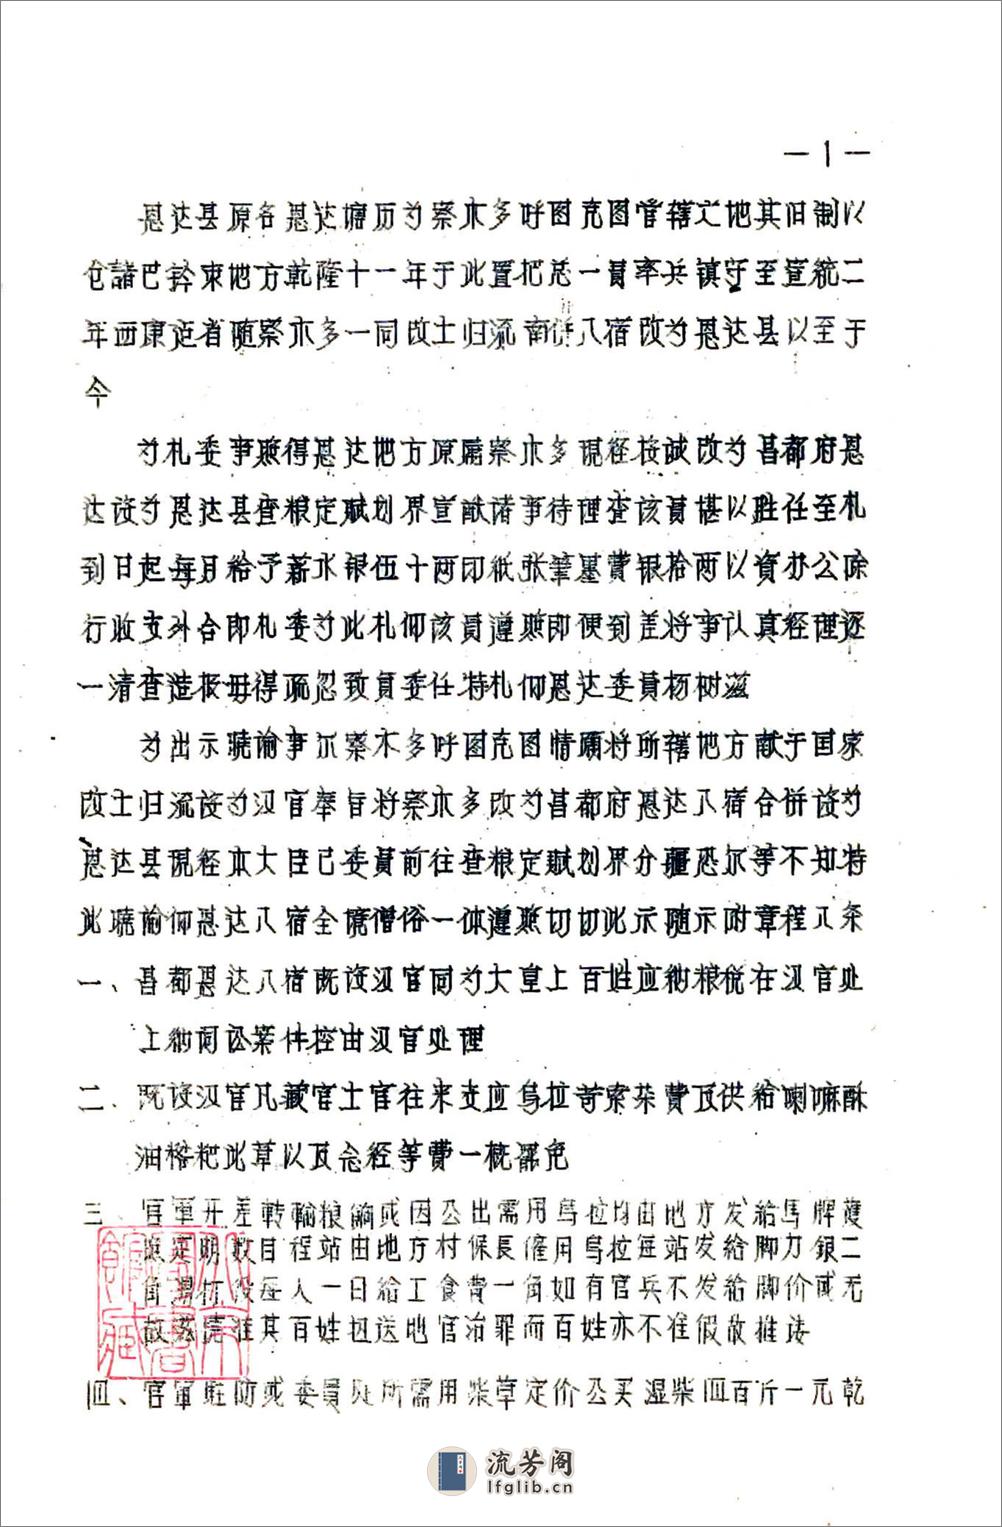 —1—
恩达县原名恩达塘历为察木多呼图克图管辖之地其旧制以
仓諸巴钤束地方乾隆十一年于此置把总一員率兵镇守至宣統二
年西康建省随察木多一同改土归流南併八宿改为恩达县以至于
今
为札委事照得恩达地方原屬察木多現经投誠改为昌都府恩
达设为恩达县查粮定賦划界宣猷诸事待理查该員堪以胜任至札
到日起每月给予薪水银伍十两印紙张筆墨费银拾两以資办公除
行政支外合即札委为此札仰该員遵照即便到差将事认真经理逐
一清查造报毋得疏忽致負委任特札仰恩达委員杨树滋
为出示曉谕事尔察木多呼图克图情願将所辖地方献于国家
改土归流设为汉官奉旨将察木多改为昌都府恩达八宿合併设为
恩达县現经本大臣已委員前往查粮定賦划界分疆恐尔等不知特
此曉谕仰恩达八宿全境僧俗一体遵照切切此示随示附章程八条
一、昌都恩达八宿既设汉官同为大皇上百姓应納粮税在汉官处
上納词讼案件控由汉官处理
二、既设汉官凡藏官土官往来支应乌拉等索柴費及供给喇嘛酥
油糌粑柴草以及念经等费一概豁免
三、官軍开差转輸粮餉或因公出需用乌拉均由地方发给馬牌護
照定明数目程站由地方村保長僱用乌拉每站发给脚力銀二
角湯打役每人一日给工食费一角如有官兵不发给脚价或无
故滋扰准其百姓扭送地官治罪而百姓亦不准假故推诿
四、官軍駐防或委員处所需用柴草定价公买湿柴四百斤一元乾
流芳阁
lfglib.cn